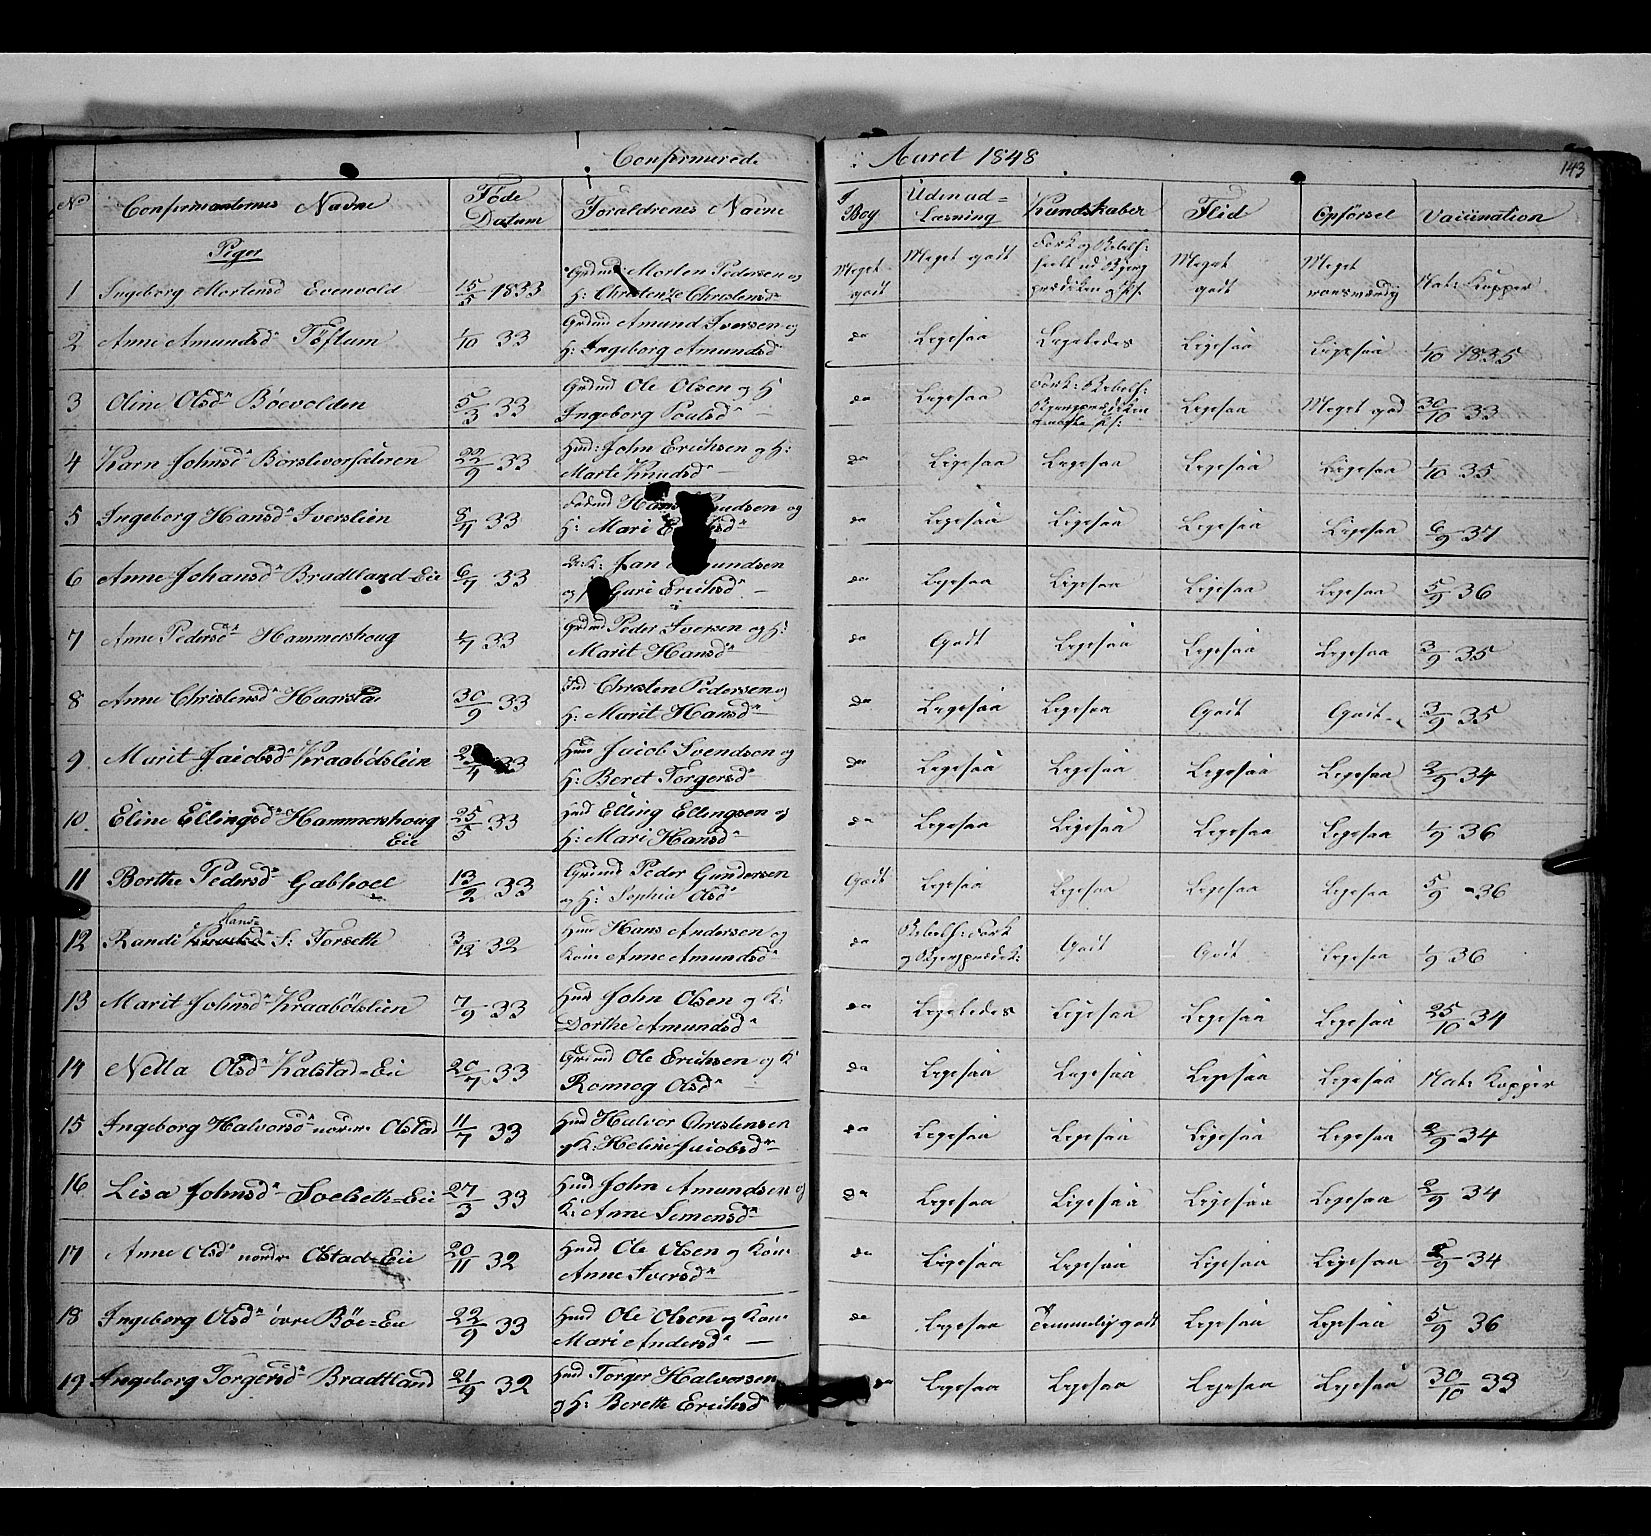 Confirmerede i Aaret 1848
143
No Confirmanternes Navne Føde Datum Forældrenes Navne I Bog Udenad-Læsning Kundskaber Flid Opførsel Vaccination
Piger
1 Ingeborg Mortensd Evenvold 15/5 1833 Grdmd Morten Pedersen og H: Christenze Christensd Meget godt Meget godt Meget godt Meget Nat: Kopper
2 Anne Amundsd Töftum 1/10 33 Grdmd Amund Iversen og H: Ingeborg Amundsd do Ligesaa Ligeledes Ligesaa Ligesaa 1/10 1835
3 Oline Olsdr Böevolden 5/3 33 Grdmd Ole Olsen og H Ingeborg Poulsdr do Ligesaa Ligesaa Meget god 30/10 33
4 Karn Johnsdr 22/9 33 Hmd: John Erichsen og H: Marte Knudsdr do Ligesaa Ligesaa Ligesaa Ligesaa 1/10 35
5 Ingeborg Hansdr Iverslien 33 og H: Mari do Ligesaa Ligesaa Ligesaa Ligesaa 6/9 37
6 Anne Johansdr Bradtland-Eie 6/7 33 og Guri Erichsdr do Ligesaa Ligesaa Ligesaa Ligesaa 5/9 36
7 Anne Pedersdr Hammershoug 33 Grdmd Peder Iversen og H: Marit Hansdr do Godt Ligesaa Ligesaa Ligesaa 3/9 35
8 Anne Christensdr Haarstad 30/9 33 Christen Pedersen og H: Marit Hansdr do Ligesaa Ligesaa Godt Godt 3/9 35
9 Marit Jacobsdr Kraabölslien 33 Hmd Jacob Svendsen og H: Beret Torgersdr do Ligesaa Ligesaa Ligesaa Ligesaa 2/9 34
10 Eline Ellingsdr Hammershoug Eie 25/5 33 Hmd Elling Ellingsen og H: Mari Hansdr do Ligesaa Ligesaa Ligesaa Ligesaa 1/9 36
11 Borthe Pedersdr Gabhoel 13/2 33 Grdmd Peder Gundersen og H: Sophia Olsdr Godt Ligesaa Ligesaa Ligesaa Ligesaa 5/9 36
12 Randi Hans- Forseth 3/12 32 Hmd Hans Andersen og Kone Anne Amundsdr do Godt Godt Ligesaa 1/9 36
13 Marit Johnsdr Kraabölslien 7/9 33 Hmd John Olsen og K: Dorthe Amundsdr do Ligeledes Ligesaa Ligesaa Ligesaa 25/10 34
14 Nella Olsdr Kalstad-Eie 20/7 33 Grdmd Ole Erichsen og K Ronnog Olsdr do Ligesaa Ligesaa Ligesaa Ligesaa Nat: Kopper
15 Ingeborg Halvorsdr nordre Olstad 11/7 33 Hmd Halvor Christensen og K: Heline Jacobsdr do Ligesaa Ligesaa Ligesaa Ligesaa 2/9 34
16 Lisa Johnsdr 27/3 33 Hmd John Amundsen og K: Anne Semensdr do Ligesaa Ligesaa Ligesaa Ligesaa 2/9 34
17 Anne Olsdr nordre Olstad-Eie 20/11 32 Hmd Ole Olsen og Kone Anne Iversdr do Ligesaa Ligesaa Ligesaa Ligesaa 34
18 Ingeborg Olsdr övre Böe-Eie 22/9 33 Hmd Ole Olsen og Kone Mari Andersdr do Ligesaa Temmelig godt Ligesaa Ligesaa 5/9 36
19 Ingeborg Torgersdr Bradtland 21/9 32 Hmd Torger Halvorsen og H: Berette Erichsdr do Ligesaa Ligesaa Ligesaa Ligesaa 30/10 33